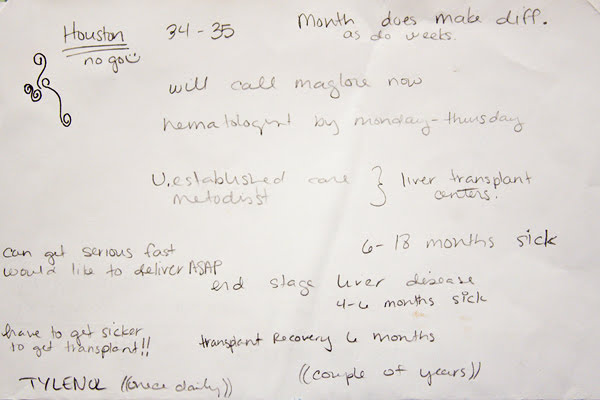 Houston 34-35 Month does make diff.
as do weeks.
no go
will call maglore now
hematologist by monday-thursday
U. established care } liver transplant
metodist centers.
6-18 months sick
can get serious fast
would like to deliver ASAP
end stage liver disease
4-6 months sick
have to get sicker
to get transplant!!
transplant recovery 6 months
TYLENOL ((once daily)) ((couple of years))